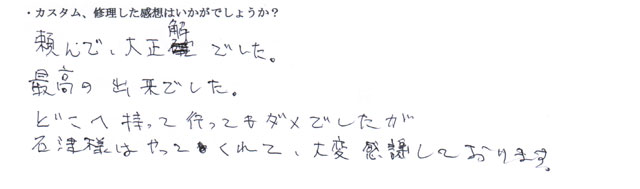 ・カスタム、修理した感想はいかがでしょうか？
頼んで、大正解でした。
最高の出来でした。
どこへ持って行ってもダメでしたが
石津様はやってくれて、大変感謝しております。